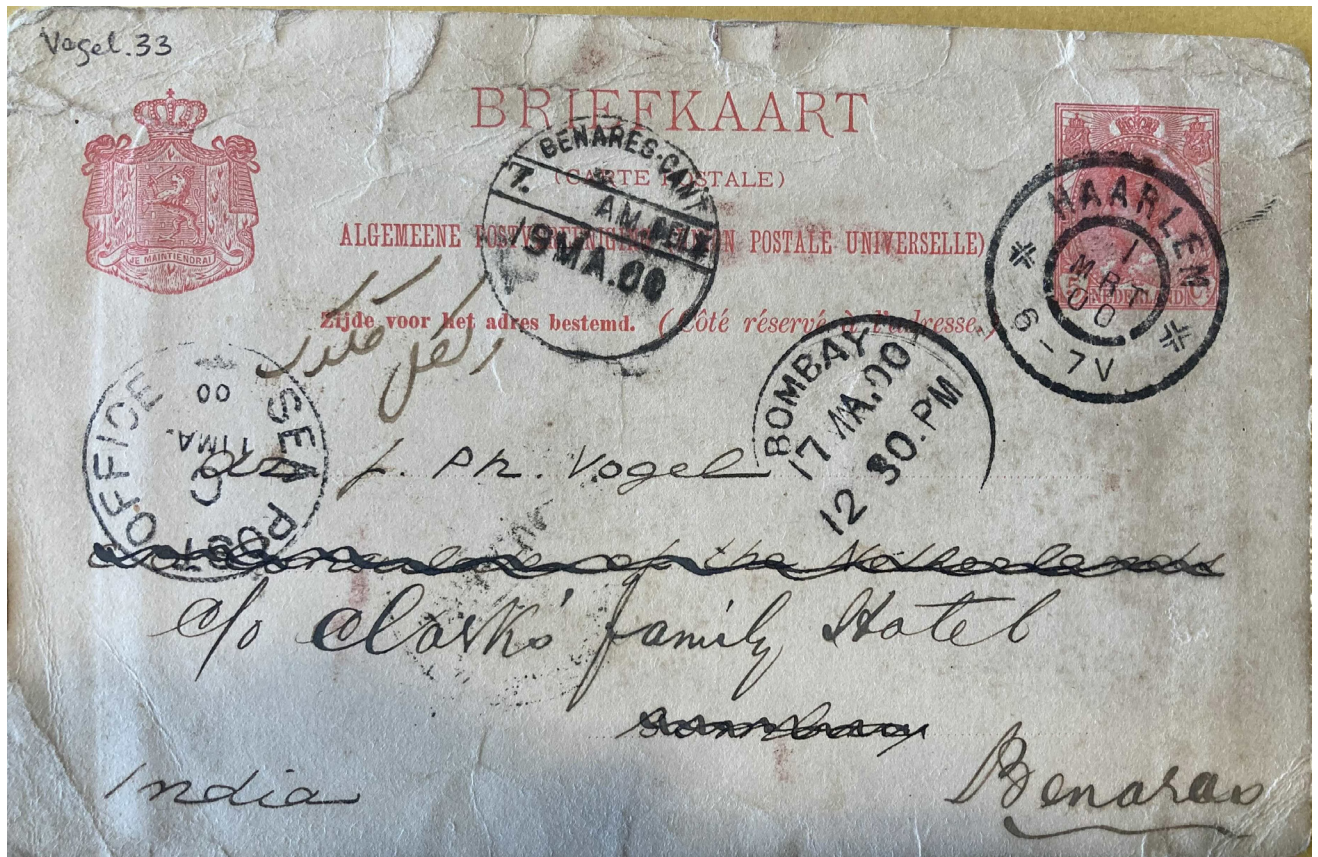 Vogel.33
BRIEFKAART
(CARTE POSTALE)
ALGEMEENE POSTVEREENIGING (UNION POSTALE UNIVERSELLE)
Zijde voor het adres bestemd. (Côté réservé à l'adresse.)
JE MAINTIENDRAI
NEDERLAND
HAARLEM
1
MRT
00
6-7V
BENARES·CANT
7.
A.M. DELY.
19 MA.00
BOMBAY
17 MA.00
12 30.PM
SEA POST OFFICE
C
MA.
00
J. Ph. Vogel
of the Netherlands
c/o Clark's family Hotel
Bombay
India
Benares